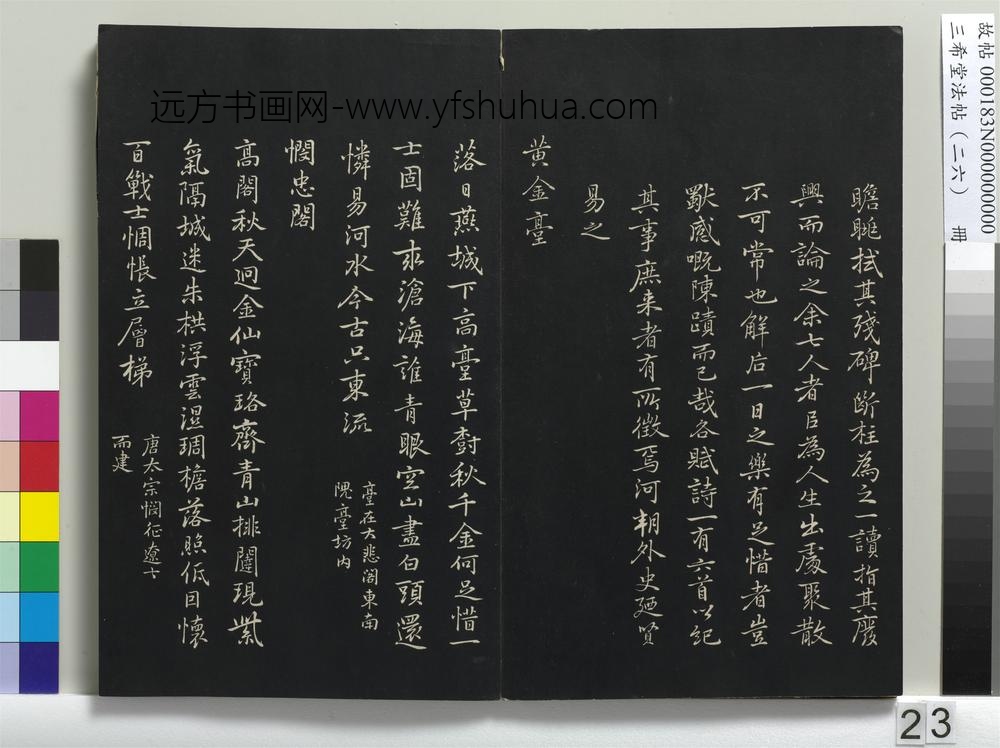 远方书画网-www.yfshuhua.com
瞻眺拭其殘碑斷柱為之一讀指其廢
興而論之余七人者㠯為人生出處聚散
不可常也解后一日之樂有足惜者豈
歟感嘅陳蹟而已哉各賦詩一有六首以紀
其事庶来者有所徵焉河朔外史廼賢
易之
黄金臺
落日燕城下高臺草樹秋千金何足惜一
士固難求滄海誰青眼空山盡白頭還
憐易河水今古只東流
臺在大悲閣東南
隗臺坊内
憫忠閣
高閣秋天迥金仙寶珞齊青山排闥現紫
氣隔城迷朱栱浮雲濕琱檐落照低因懷
百戰士惆悵立層梯
唐太宗憫征遼士
而建
故帖 000183N000000000
三希堂法帖（二六） 冊
23